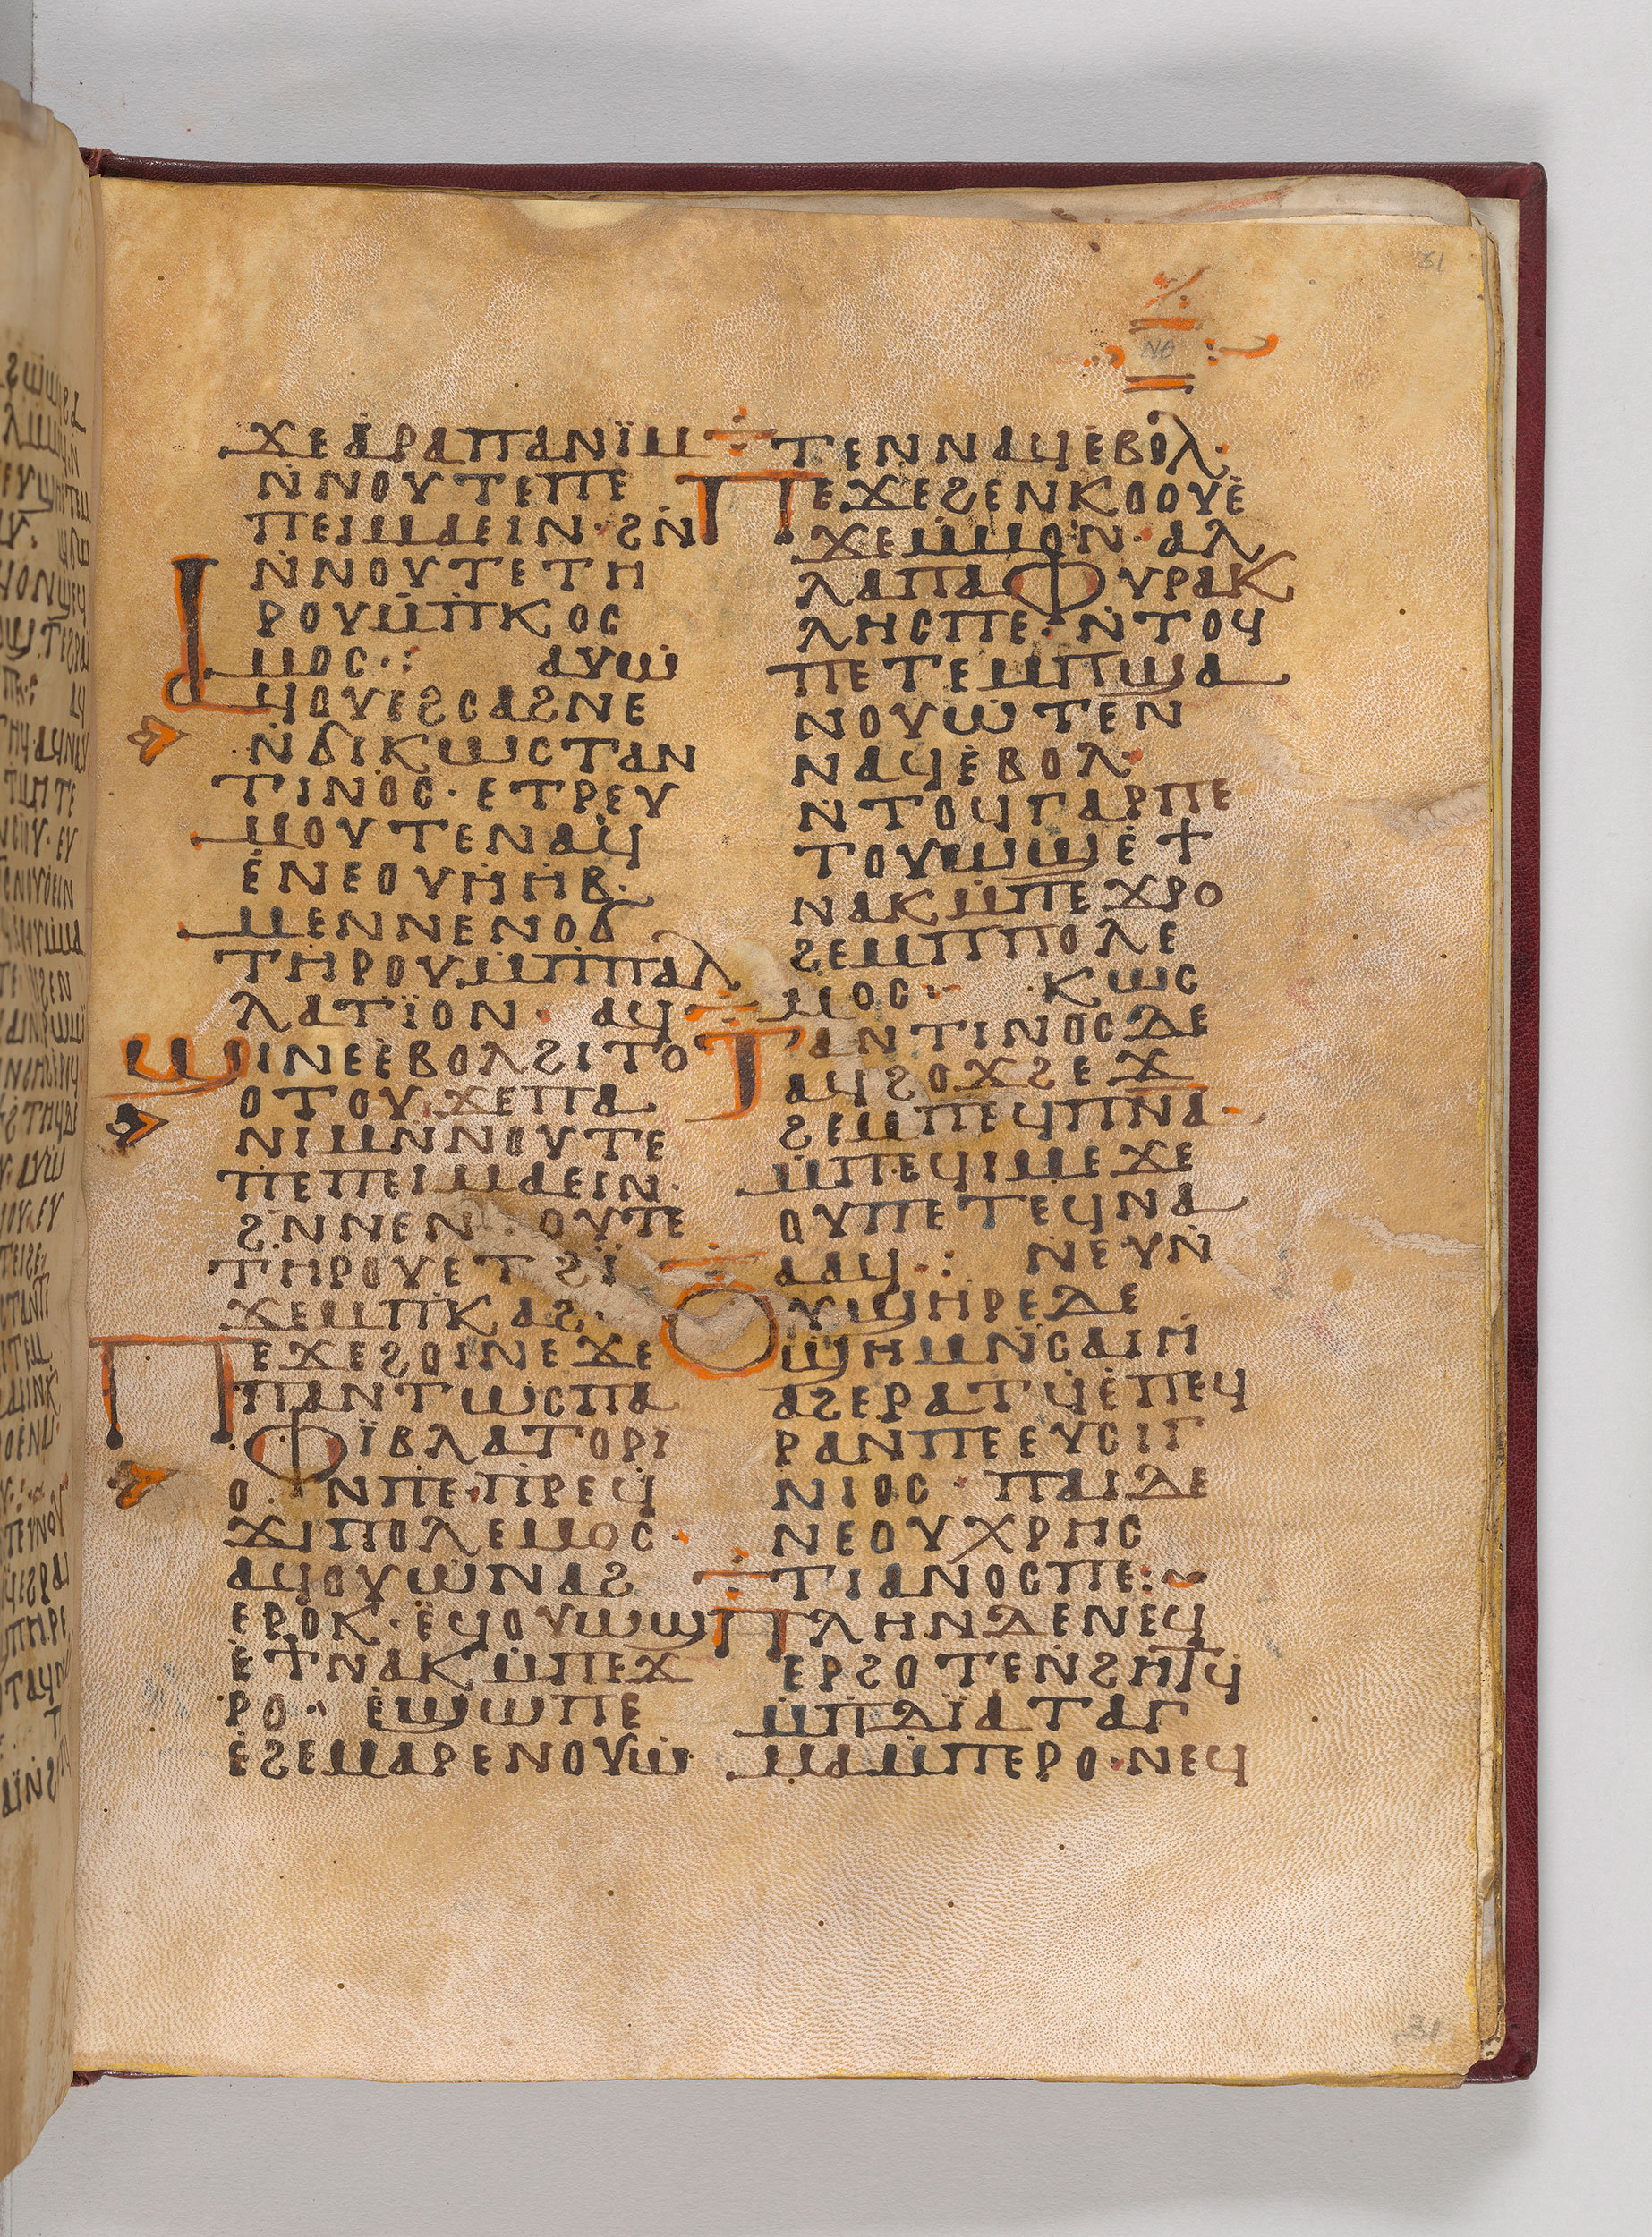 31
ⲛⲑ
ϫⲉⲁⲣⲁⲡⲁⲛⲓ̈ⲙ
ⲛ̇ⲛⲟⲩⲧⲉⲡⲉ
ⲡⲉⲓⲙⲁⲉⲓⲛ·ϩⲛ̇
ⲛ̇ⲛⲟⲩⲧⲉⲧⲏ
ⲣⲟⲩⲙ̇ⲡ̇ⲕⲟⲥ
ⲙⲟⲥ·: ⲁⲩⲱ̇
ⲁϥⲟⲩⲉϩⲥⲁϩⲛⲉ
ⲛ̇ϭⲓⲕⲱⲥⲧⲁⲛ
ⲧⲓⲛⲟⲥ·ⲉⲧⲣⲉⲩ
ⲙⲟⲩⲧⲉⲛⲁϥ
ⲉ̇ⲛⲉⲟⲩⲏ̇ⲏⲃ·
ⲙⲉⲛⲛⲉⲛⲟϭ
ⲧⲏⲣⲟⲩⲙ̇ⲡⲡⲁⲗ
ⲗⲁⲧⲓ̈ⲟⲛ· ⲁϥ
ϣⲓⲛⲉⲉ̇ⲃⲟⲗϩⲓⲧⲟ
ⲟⲧⲟⲩ·ϫⲉⲡⲁ
ⲛⲓⲙⲛ̇ⲛⲟⲩⲧⲉ
ⲡⲉⲡⲉⲓⲙⲁⲉⲓⲛ·
ϩⲛ̇ⲛⲉⲛ ⲟⲩⲧⲉ
ⲧⲏⲣⲟⲩⲉⲧϩⲓ̈
ϫⲉⲙⲡ̇ⲕⲁϩ·
ⲡⲉϫⲉϩⲟⲓⲛⲉϫⲉ
ⲡⲁⲛⲧⲱⲥⲡⲁ
ⲫⲓ̈ⲃⲗⲁⲧⲟⲣⲓ
ⲟ ⲛⲡⲉ·ⲡ̇ⲣⲉϥ
ϫⲓⲡⲟⲗⲉⲙⲟⲥ·
ⲁϥⲟⲩⲱ̇ⲛⲁϩ
ⲉⲣⲟⲕ·ⲉ̇ϥⲟⲩⲱϣ
ⲉ̇ϯⲛⲁⲕⲙ̇ⲡⲉϫ
ⲣⲟ· ⲉ̇ϣⲱⲡⲉ
ⲉ̇ϩⲉⲙⲁⲣⲉⲛⲟⲩⲱ̇
ⲧⲉⲛⲛⲁϥⲉ̇ⲃⲟⲗ·
ⲡⲉϫⲉϩⲉⲛⲕⲟⲟⲩⲉ̇
ϫⲉⲙ̇ⲙⲟⲛ·ⲁⲗ
ⲗⲁⲡⲁⲫⲩⲣⲁⲕ
ⲗⲏⲥⲡⲉ·ⲛ̇ⲧⲟϥ
ⲡⲉⲧⲉⲙⲡϣⲁ
ⲛⲟⲩⲱ̇ⲧⲉⲛ
ⲛⲁϥⲉ̇ⲃⲟⲗ·
ⲛ̇ⲧⲟϥⲅⲁⲣⲡⲉ
ⲧⲟⲩⲱϣⲉ̇ϯ
ⲛⲁⲕⲙ̇ⲡⲉϫⲣⲟ
ϩⲉⲙⲡⲡⲟⲗⲉ
ⲙⲟⲥ· ·ⲕⲱⲥ
ⲧⲁⲛⲧⲓⲛⲟⲥⲇⲉ
ⲁϥϩⲟϫϩⲉϫ
ϩⲉⲙⲡⲉϥⲡⲛⲁ·
ⲙ̇ⲡⲉϥⲓⲙⲉϫⲉ
ⲟⲩⲡⲉⲧⲉϥⲛⲁ
ⲁⲁϥ·: ⲛⲉⲩⲛ̇
ⲟⲩϣⲏⲣⲉⲇⲉ
ϣⲏⲙⲛ̇ⲥⲁⲓⲏ̇
ⲁϩⲉⲣⲁⲧϥ̇ⲉ̇ⲡⲉϥ
ⲣⲁⲛⲡⲉⲉⲩⲥⲓⲅ
ⲛⲓⲟⲥ· ⲡⲁⲓⲇⲉ
ⲛⲉⲟⲩⲭⲣⲏⲥ
ⲧⲓⲁⲛⲟⲥⲡⲉ:
ⲡⲗⲏⲛⲇⲉⲛⲉϥ
ⲉⲣϩⲟⲧⲉⲛ̇ϩⲏⲧϥ̇
ⲙ̇ⲡ̇ⲇⲓ̈ⲁⲧⲁⲅ
ⲙⲁⲙ̇ⲡⲉⲣⲟ·ⲛⲉϥ
31